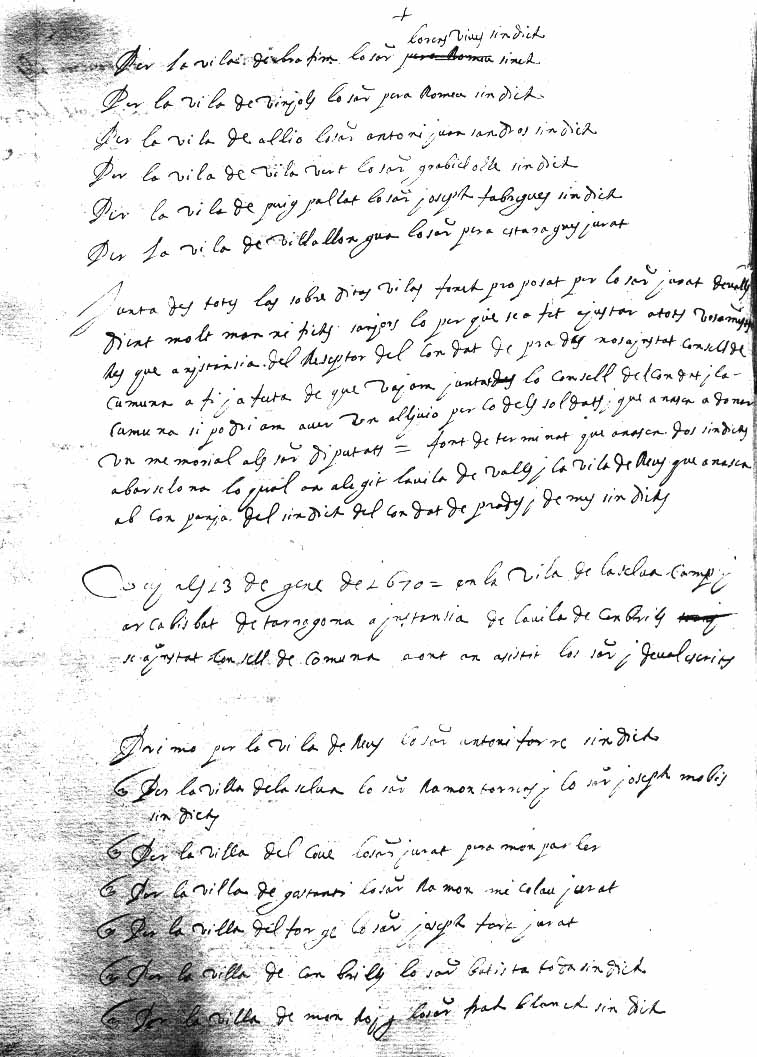 +
lorens vives sindich
Per la vila de la brafim lo sâr pera Romeu sinch
Per la vila de vinjols lo sâr pera Romeu sindich
Per la vila de allio lo sâr antoni juan sandros sindich
Per la vila de vila vert lo sâr grabiel olle sindich
Per la vila de puig pallat lo sâr joseph fabregues sindich
Per la vila de villallongua lo sâr pera estaragues jurat
Junta des totes las sobre ditas vilas fonch proposat per lo sâr jurat de valls
dient molt magnifichs senjors lo per que se a fet ajustar a tots vosa
Res que a jstansia del Reseptor del Condat de prades nos ajustat consell de
Comuna a fi ja feta de que vajam juntades lo Consell del Condat j la
Comuna si podriam aver un alljuio per co dels soldats que anasen a donar
un memorial als sâr diputats = font determinat que anasen dos sindichs
a barselona lo qual an alegit la vila de valls j la vila de Reus que anasen
ab Companja del sindich del Condat de prades j de mes sindichs
Vuj als 13 de gene de 1670 = en la vila de la selva Camp j
arcabisbat de tarragona a jnstansia de la vila de Canbrils
se ajustat Consell de Comuna a ont an asistit los sâr j devalescrits
Primo per la vila de Reus lo sâr antoni forre sindich
Per la villa de la selva lo sâr Ramon torres j lo sâr joseph
sindichs
Per la villa del Cove lo sâr jurat pera mon par ler
Per la villa de gostanti lo sâr Ramon micolau jurat
Per la villa del forge lo sâr joseph fort jurat
Per la villa de Canbrils lo sâr batista toda sindich
Per la villa de mon Roj j lo sâr frah blanch sindich